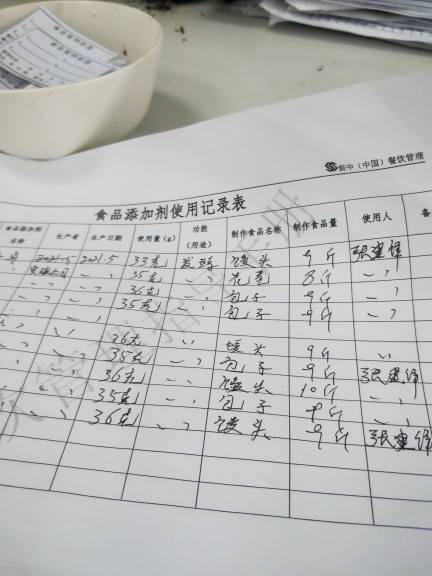 新中（中国）餐饮管理
食品添加剂使用记录表
食品添加剂名称 生产者 生产日期 使用量（g） 功能（用途） 制作食品名称 制作食品量 使用人 备
2021.5 2021.5 33克 发酵 馒头 9斤 张建
35克 花卷 8斤
36克 包子 9斤
35克 包子 9斤
36克 馒头 9斤
35克 包子 9斤 张建
36克 馒头 10斤
35克 包子 9斤
36克 馒头 9斤 张建